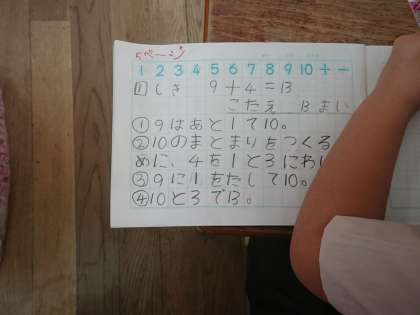 5ページ
1 2 3 4 5 6 7 8 9 10 + −
1 しき 9+4=13
こたえ 13まい
①9はあと1で10。
②10のまとまりをつくる
めに、4を1と3にわ
③9に1をたして10。
④10と3で13。